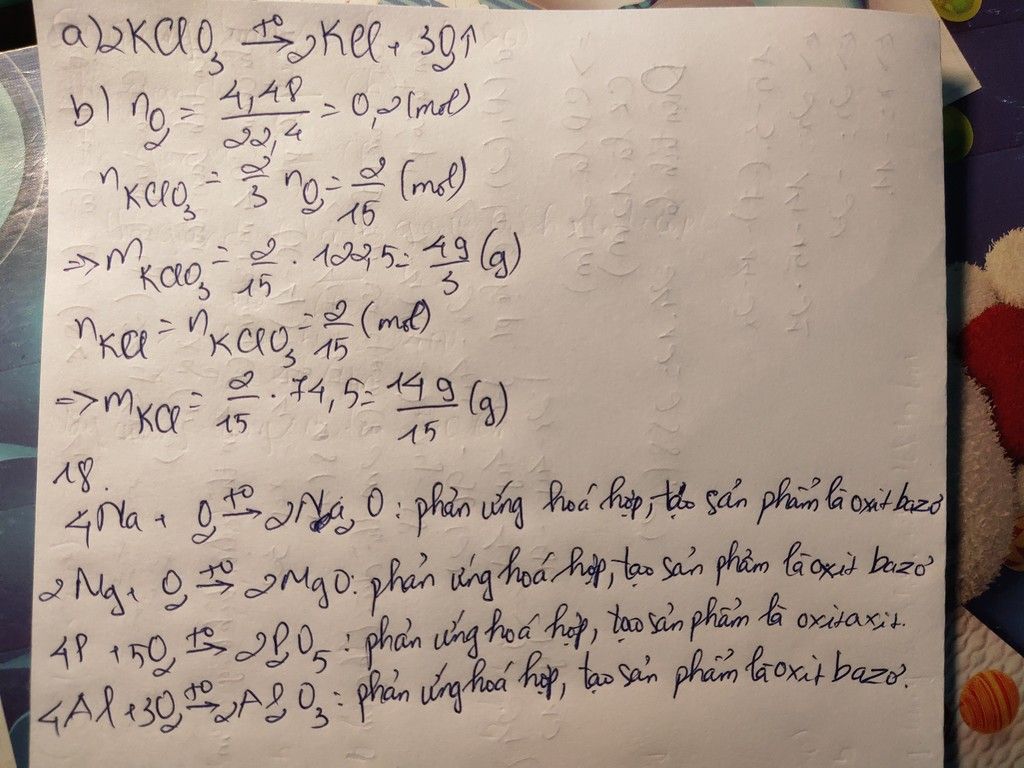 a) 2KClO₃ →(t°) 2KCl + 3O₂↑
b) nO₂ = 4,48/22,4 = 0,2 (mol)
nKClO₃ = 2/3 nO₂ = 2/15 (mol)
=> mKClO₃ = 2/15 . 122,5 = 49/3 (g)
nKCl = nKClO₃ = 2/15 (mol)
=> mKCl = 2/15 . 74,5 = 149/15 (g)
18.
4Na + O₂ →(t°) 2Na₂O : phản ứng hoá hợp, tạo sản phẩm là oxit bazơ
2Mg + O₂ →(t°) 2MgO : phản ứng hoá hợp, tạo sản phẩm là oxit bazơ
4P + 5O₂ →(t°) 2P₂O₅ : phản ứng hoá hợp, tạo sản phẩm là oxit axit.
4Al + 3O₂ →(t°) 2Al₂O₃ : phản ứng hoá hợp, tạo sản phẩm là oxit bazơ.